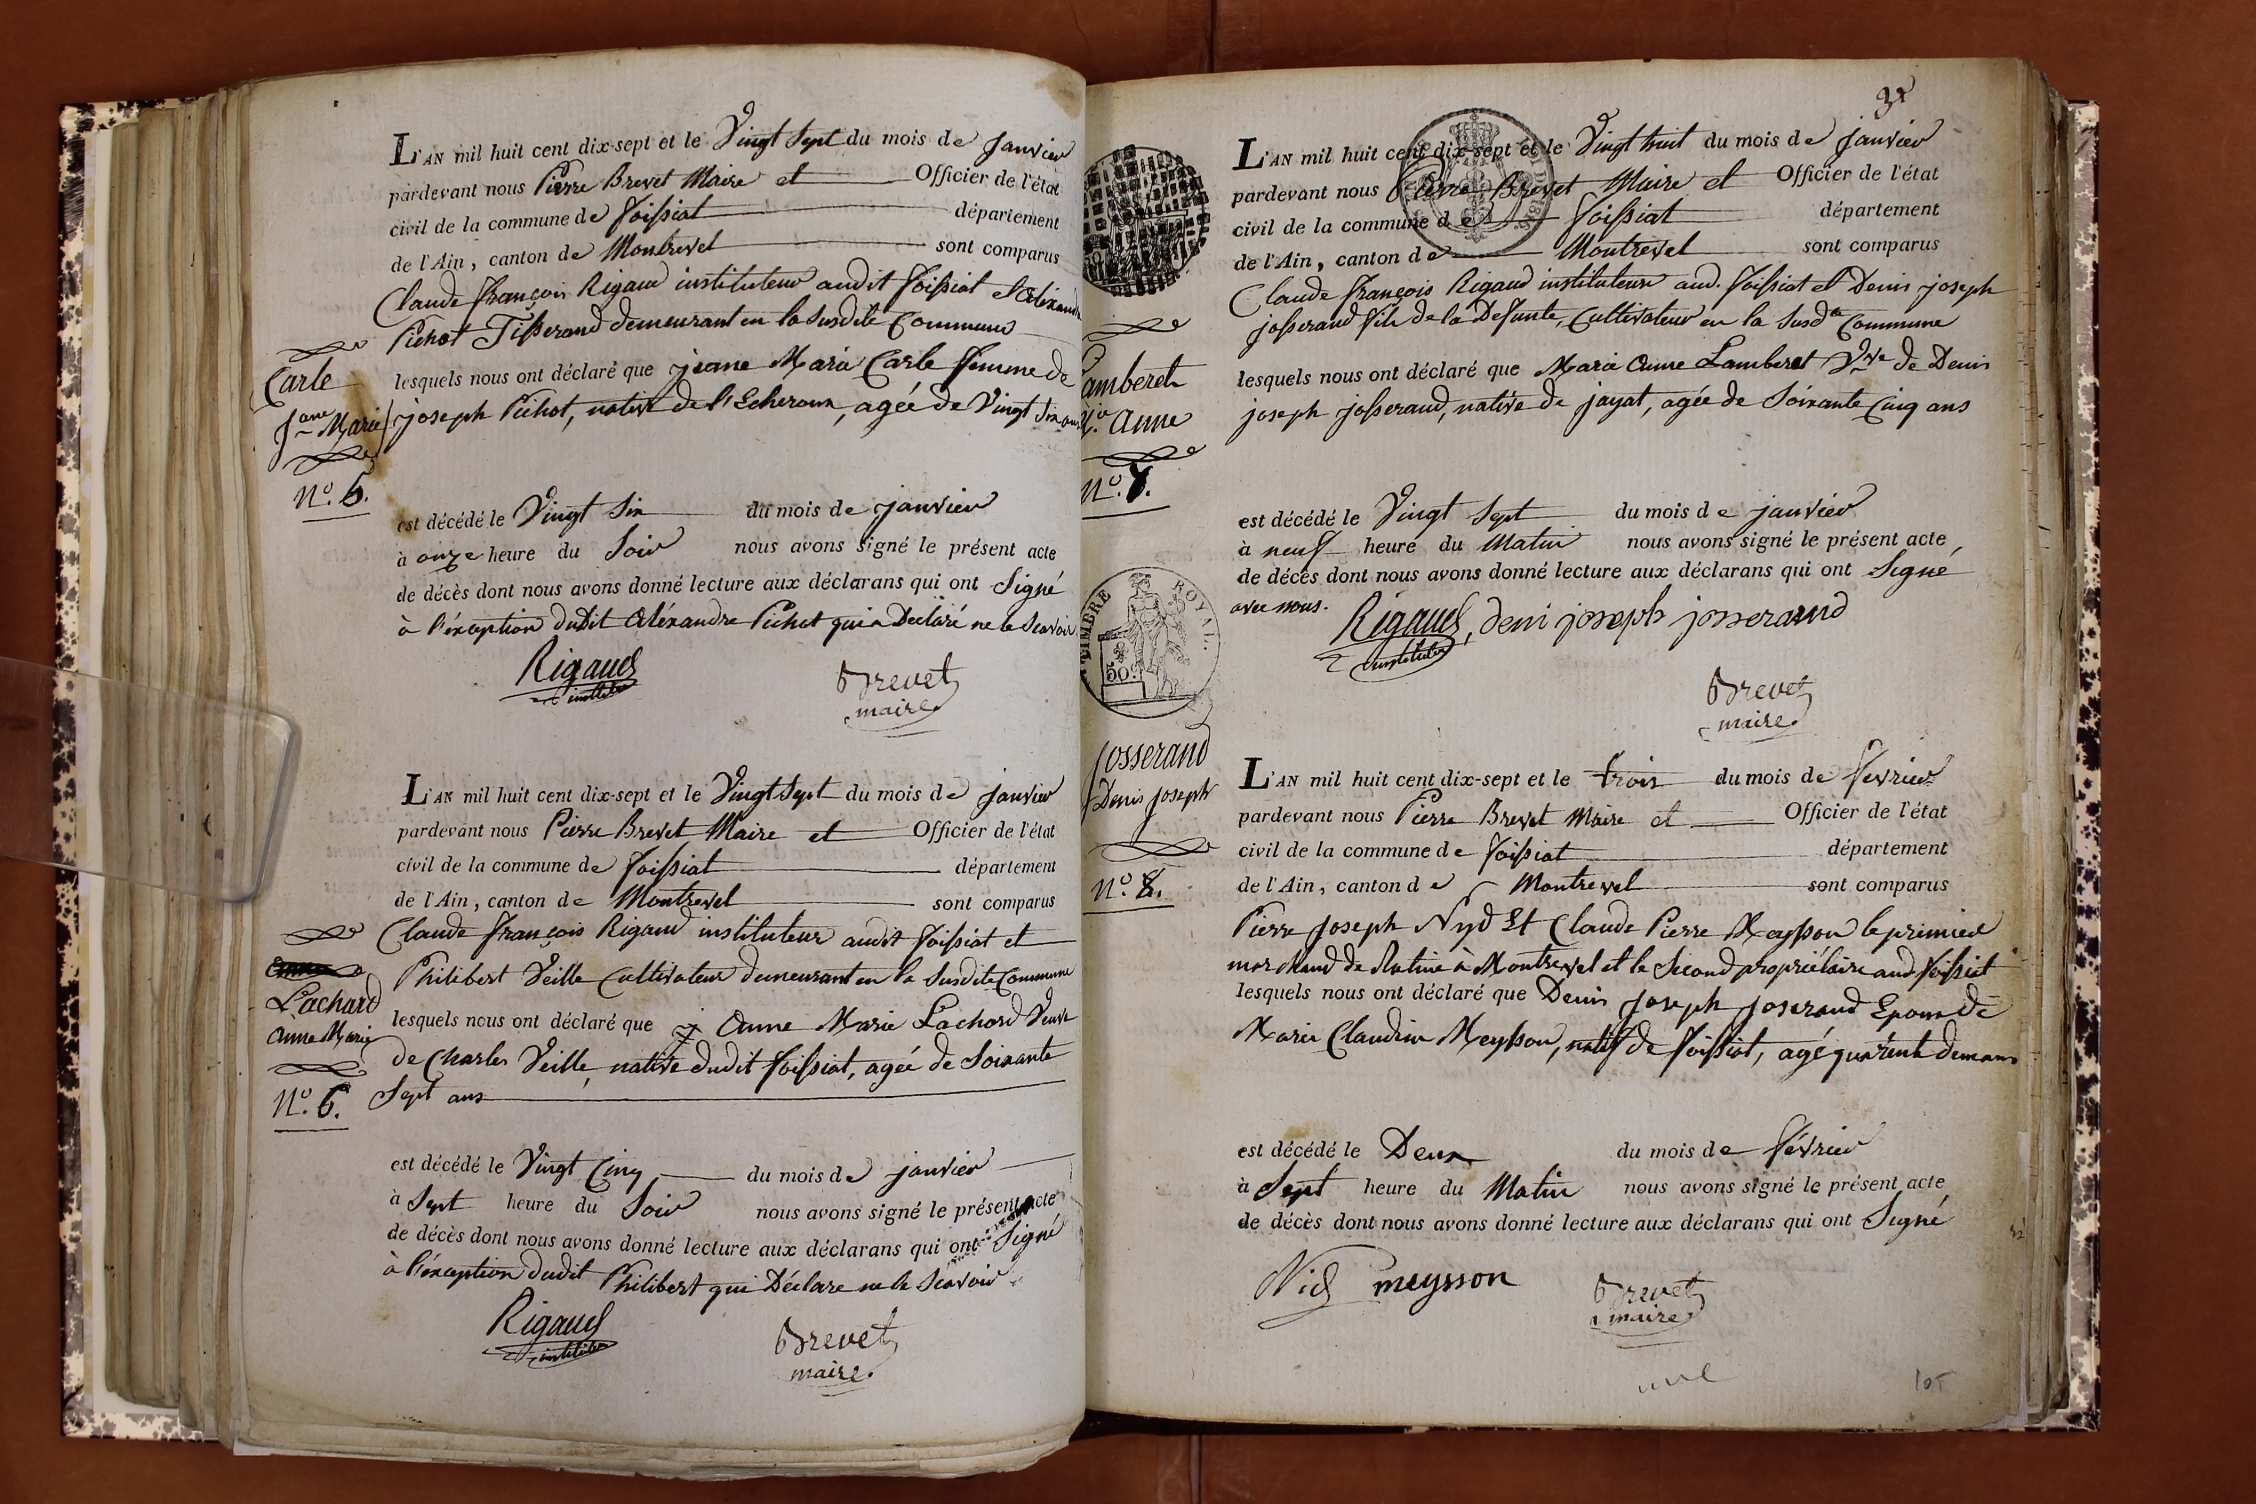 L'AN mil huit cent dix-sept et le Vingt Sept du mois de Janvier
pardevant nous Pierre Brevet Maire et Officier de l'état
civil de la commune de Foissiat département
de l'Ain, canton de Montrevel sont comparus
Claude François Rigaud instituteur audit Foissiat et Alexandre
Pichot Tisserand demeurant en la Susdite Commune
Carle
Jane Marie
N.º 5.
lesquels nous ont déclaré que jeane Marie Carle femme de
joseph Pichot, native de l'Echeroux, agée de Vingt Six ans
est décédé le Vingt Six du mois de janvier
à onze heure du Soir nous avons signé le présent acte
de décès dont nous avons donné lecture aux déclarans qui ont Signé
à l'éxception dudit Aléxandre Pichot qui a Declaré ne le Scavoir
Rigaud
institut
Brevet
maire
L'AN mil huit cent dix-sept et le Vingt Sept du mois de janvier
pardevant nous Pierre Brevet Maire et Officier de l'état
civil de la commune de Foissiat département
de l'Ain, canton de Montrevel sont comparus
Claude François Rigaud instituteur audit Foissiat et
Philibert Veille Cultivateur demeurant en la Susdite Commune
Lachard
Anne Marie
N.º 6.
lesquels nous ont déclaré que Anne Marie Lachard Veuve
de Charles Veille, native dudit Foissiat, agée de Soixante
Sept ans
est décédé le Vingt Cinq du mois de janvier
à Sept heure du Soir nous avons signé le présent acte
de décès dont nous avons donné lecture aux déclarans qui ont Signé
à l'éxception dudit Philibert qui Déclare ne le Scavoir
Rigaud
institut
Brevet
maire.
32
L'AN mil huit cent dix-sept et le Vingt huit du mois de janvier
pardevant nous Pierre Brevet Maire et Officier de l'état
civil de la commune de Foissiat département
de l'Ain, canton de Montrevel sont comparus
Claude François Rigaud instituteur aud. Foissiat et Denis joseph
josserand fils de la Defunte, Cultivateur en la Susdte Commune
Lamberet
Mie Anne
N.º 7.
lesquels nous ont déclaré que Marie Anne Lamberet Vve de Denis
joseph josserand, native de jayat, agée de Soixante Cinq ans
est décédé le Vingt Sept du mois de janvier
à neuf heure du Matin nous avons signé le présent acte
de décès dont nous avons donné lecture aux déclarans qui ont Signé
avec nous.
Rigaud, deni joseph josserand
institut
Brevet
maire.
TIMBRE ROYAL.
50 c
Josserand
Denis joseph
N.º 8.
L'AN mil huit cent dix-sept et le trois du mois de Fevrier
pardevant nous Pierre Brevet Maire et Officier de l'état
civil de la commune de Foissiat département
de l'Ain, canton de Montrevel sont comparus
Pierre Joseph Nyd Et Claude Pierre Meysson le premier
marchand de Ratine à Montrevel et le Second propriétaire aud. Foissiat
lesquels nous ont déclaré que Denis Joseph Joserand Epoux de
Marie Claudine Meysson, natif de Foissiat, agé quarente deux ans
est décédé le Deux du mois de Février
à Sept heure du Matin nous avons signé le présent acte
de décès dont nous avons donné lecture aux déclarans qui ont Signé
Nid meysson
Brevet
maire
105